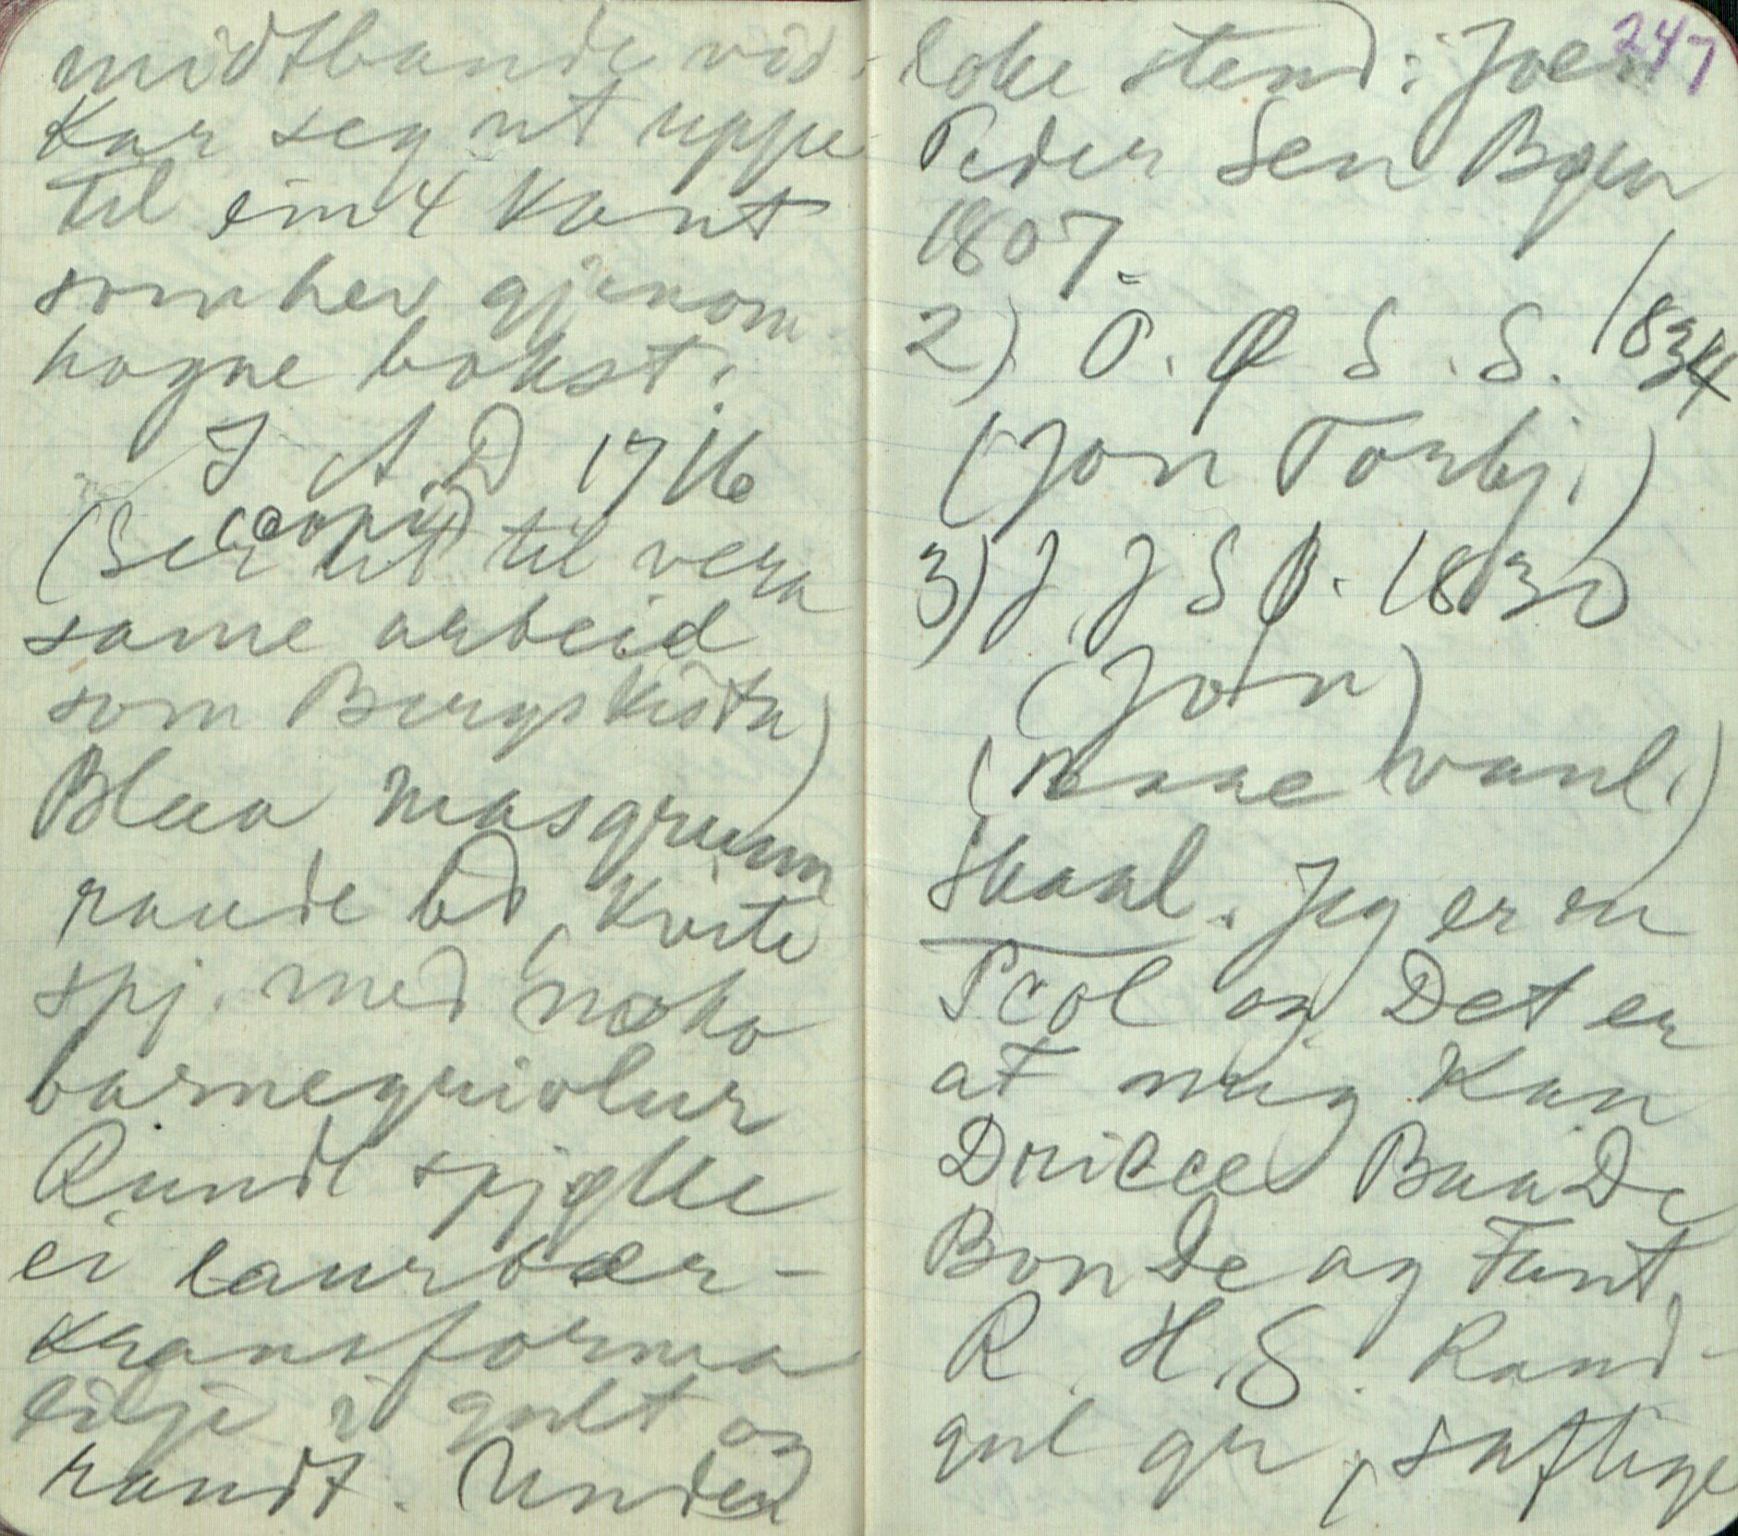 midtbande vid-
kar seg ut uppe
til ein 4 kant
som hev gjenom
hogne bokst:
I A D 1716
(copi)
(Ser ut til vera
same arbeid
som Bergskista)
Blaa masgrunn
raude bd, kvite
spj. med noko
barnegriolur
Rundt spjelle
ei laurbær-
kransforma
lilje i gult og
raudt. Under
247
loke stend: Joen
Peder Sen Bøen
1807.
2) O. Ø S. S. 1834
(Jon Torbj.)
3) J. J S Ø. 1830
(Jon)
(naae vanl.)
Skaal. Jeg er en
Scol og Det er
at mig kan
Dricce BaaDe
Bonde og Fant,
R. H. S. Raud-
gul gr, saftige